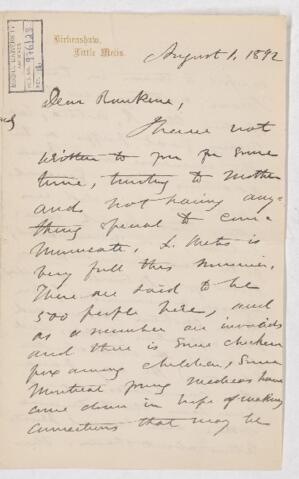 McGILL UNIVERSITY
ARCHIVES
ACC. NO.
REF.
Birkenshaw,
Little Metis.
August 1, 1892
Dear Rankine,
I have not
written to you for some
time, trusting to Mother
and not having any-
thing special to com-
municate. L. Metis is
very full this summer.
There are said to be
500 people here, and
as a number are invalids
and there is some chicken
pox among children, some
Montreal young medicos have
come down in hope of making
connections that may be